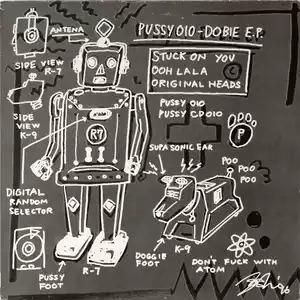 PUSSY 010 - DOBIE E.P.
ANTENNA
SIDE VIEW
R-7
STUCK ON YOU
OOH LALA
ORIGINAL HEADS
C
PUSSY 010
PUSSY CD010
P
SIDE
VIEW
K-9
R7
SUPA SONIC EAR
POO
POO
POO
DIGITAL
RANDOM
SELECTOR
K-9
DOGGIE
FOOT
DON'T FUCK WITH
ATOM
R-7
PUSSY
FOOT
96